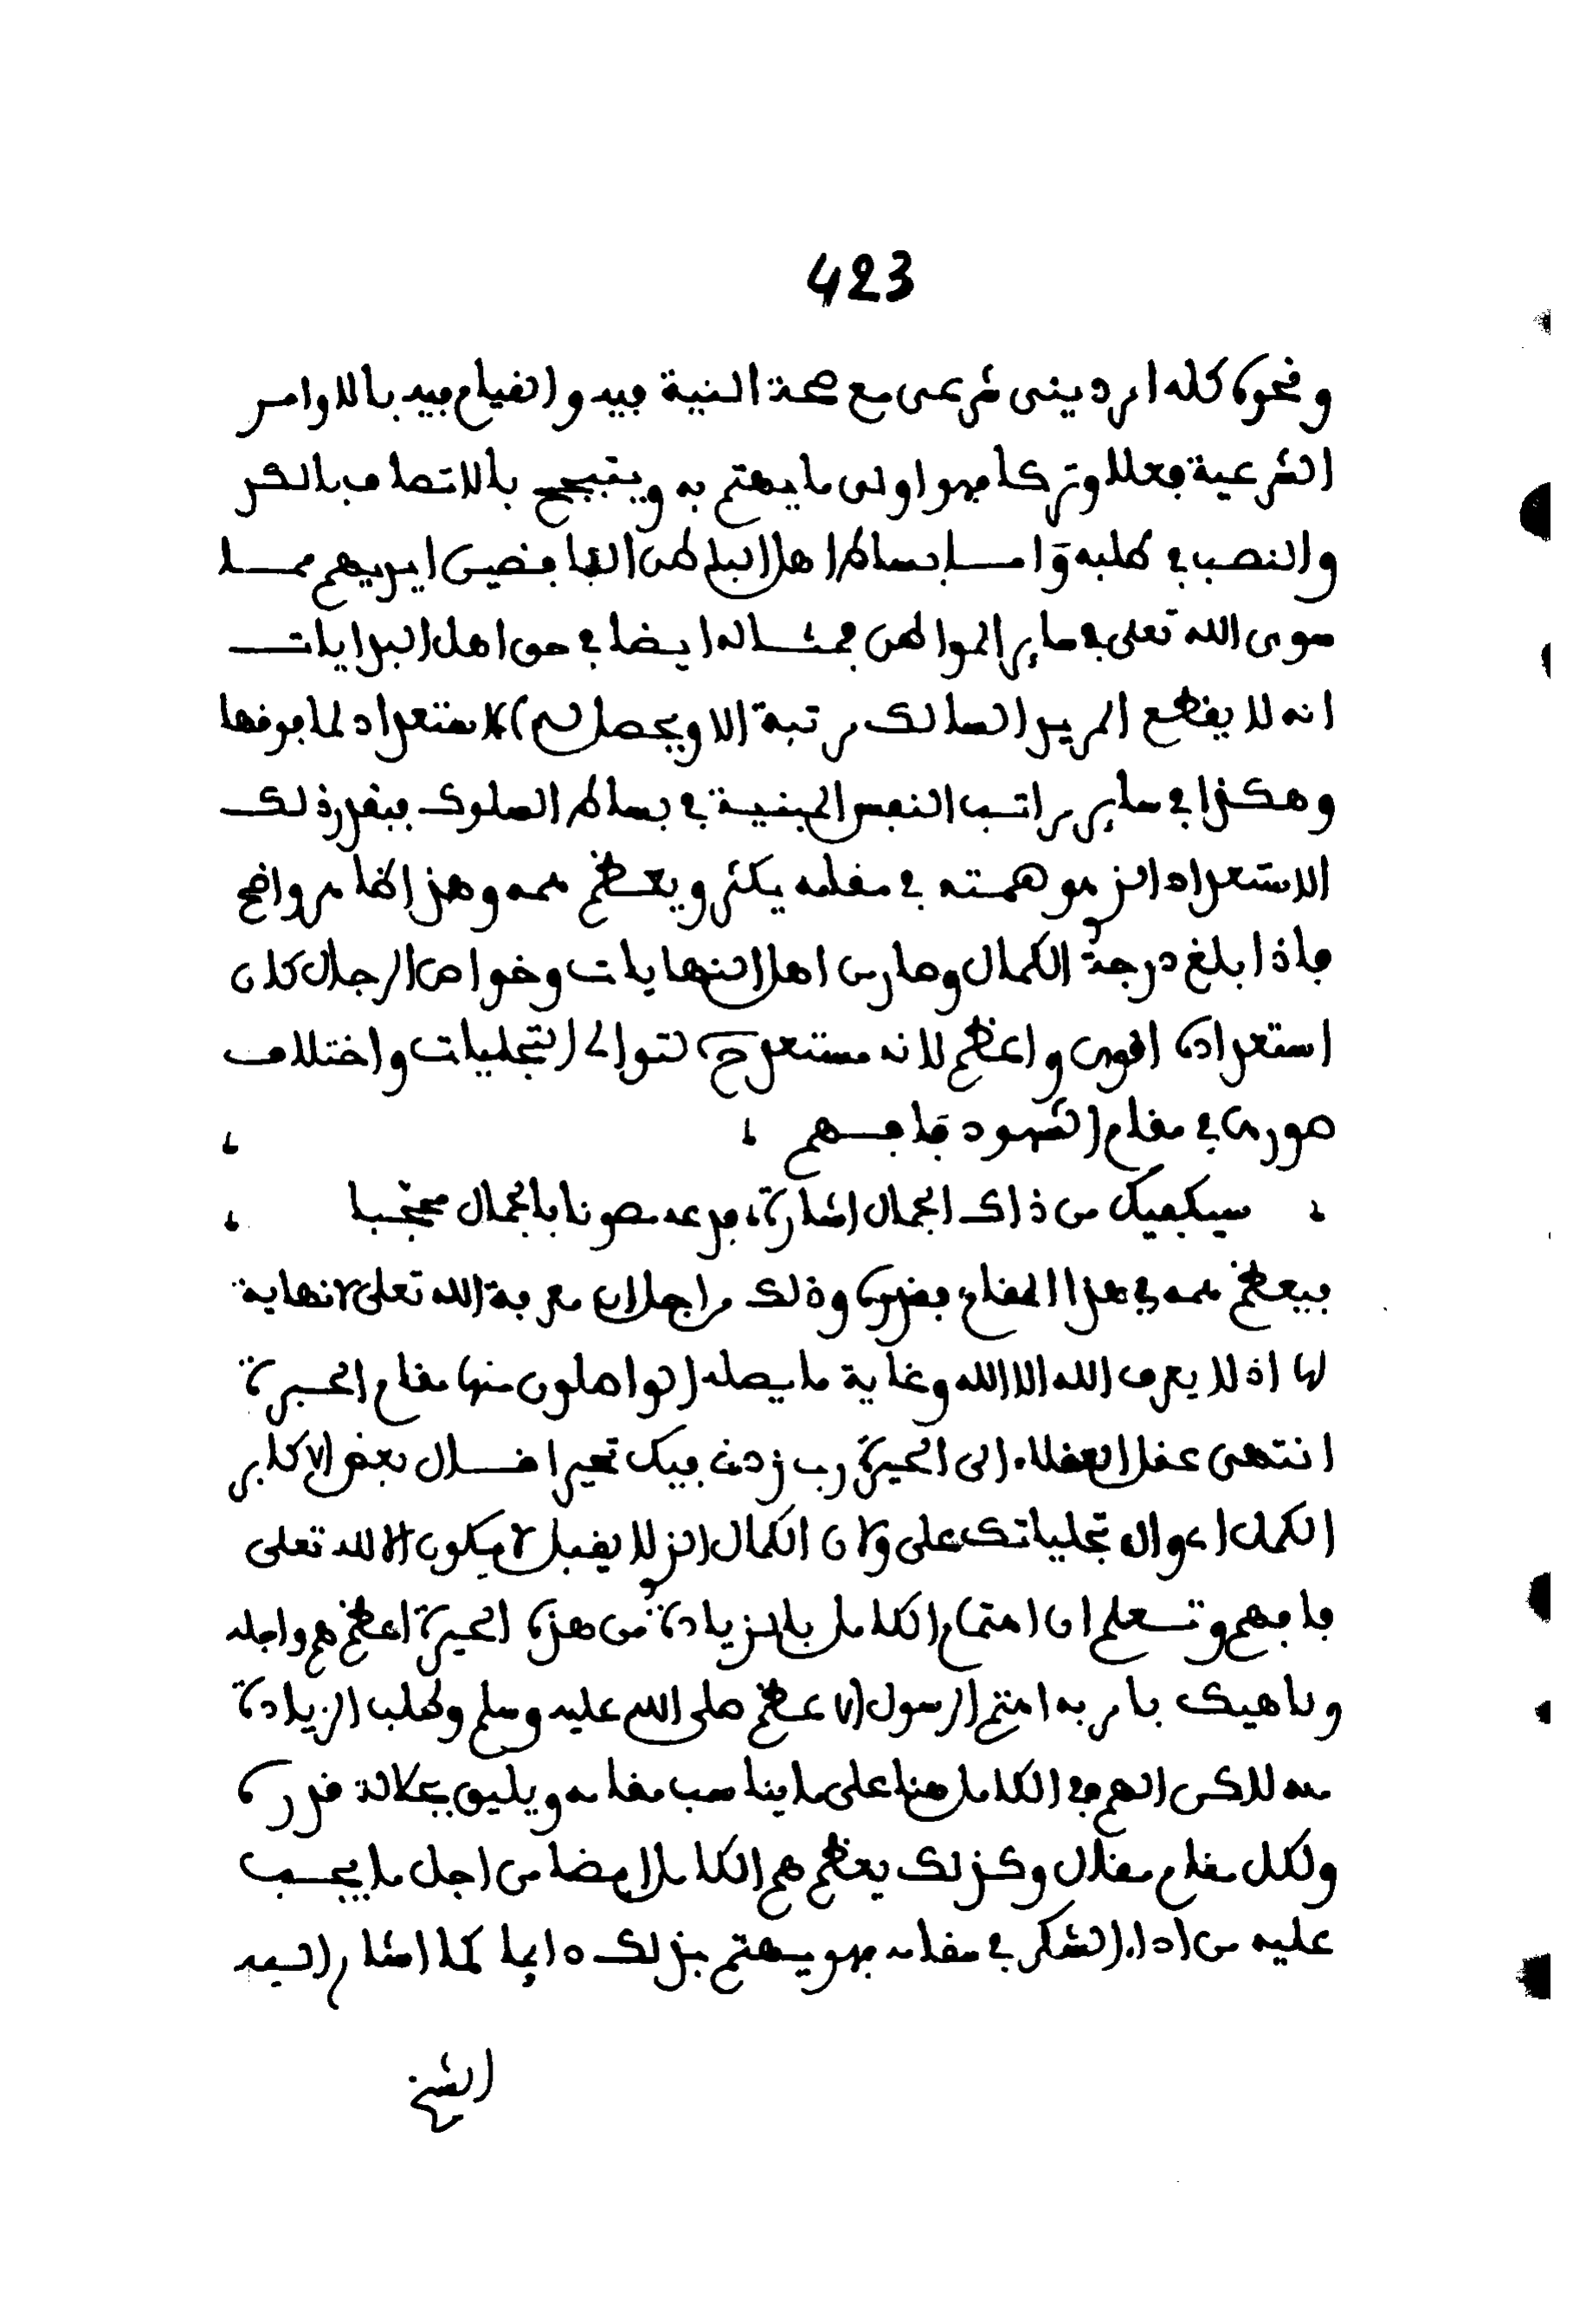 423
ونحوه كله امر ديني شرعي مع صحة النية فيه والقيام فيه بالاوامر
الشرعية فعلا وتركا فهو اولى ما يهتم به ويتبجح بالاتصاف بالكد
والنصب في طلبه وامـا بساط اهل الباطن النافضين ايديهم ممـا
سوى الله تعلى في ساير المواطن فمثـاله ايضا في حق اهل البدايات
انه لا يقطع المريد السالك مرتبة الا ويحصل له الاستعداد لما فوقها
وهكذا في ساير مراتب النفس المبنية في بساط السلوك فبقدر ذلك
الاستعداد الذي هو همته في مقامه يكثر ويعظم همه وهذا ظاهر واضح
فاذا بلغ درجة الكمال وصار من اهل النهايات وخواص الرجال كان
استعداده اقوى واعظم لانه مستعد ح لتوالي التجليات واختلاف
صورها في مقام الشهود فافـهم
سيكفيك من ذاك الجمال اشارة، فدعه مصونا بالجمال محجبا
فيعظم همه في هذا المقام بقدره وذلك من اجل ان معرفة الله تعلى لا نهاية
لها اذ لا يعرف الله الا الله وغاية ما يصله الواصلون منها مقام الحيرة
انتهى عقل العقلاء الى الحيرة رب زدني فيك تحيرا قـال بعض الاكابر
الكمل اي والِ تجلياتك علي ولان الكمال الذي لا يقبل لا يكون الا لله تعلى
فافهم وتـعلم ان اهتمام الكامل بالزيادة من هذه الحيرة اعظم هم واجله
وناهيك بامر به اهتم الرسول الاعظم صلى الله عليه وسلم وطلب الزيادة
منه لاكن الهم في الكامل هنا على ما يناسب مقامه ويليق بجلالة قدره
ولكل مقام مقال وكذلك يعظم هم الكامل ايضا من اجل ما يجـب
عليه من اداء الشكر في مقامه فهو يهتم بذلك دايما كما اشار اليه
الشيخ